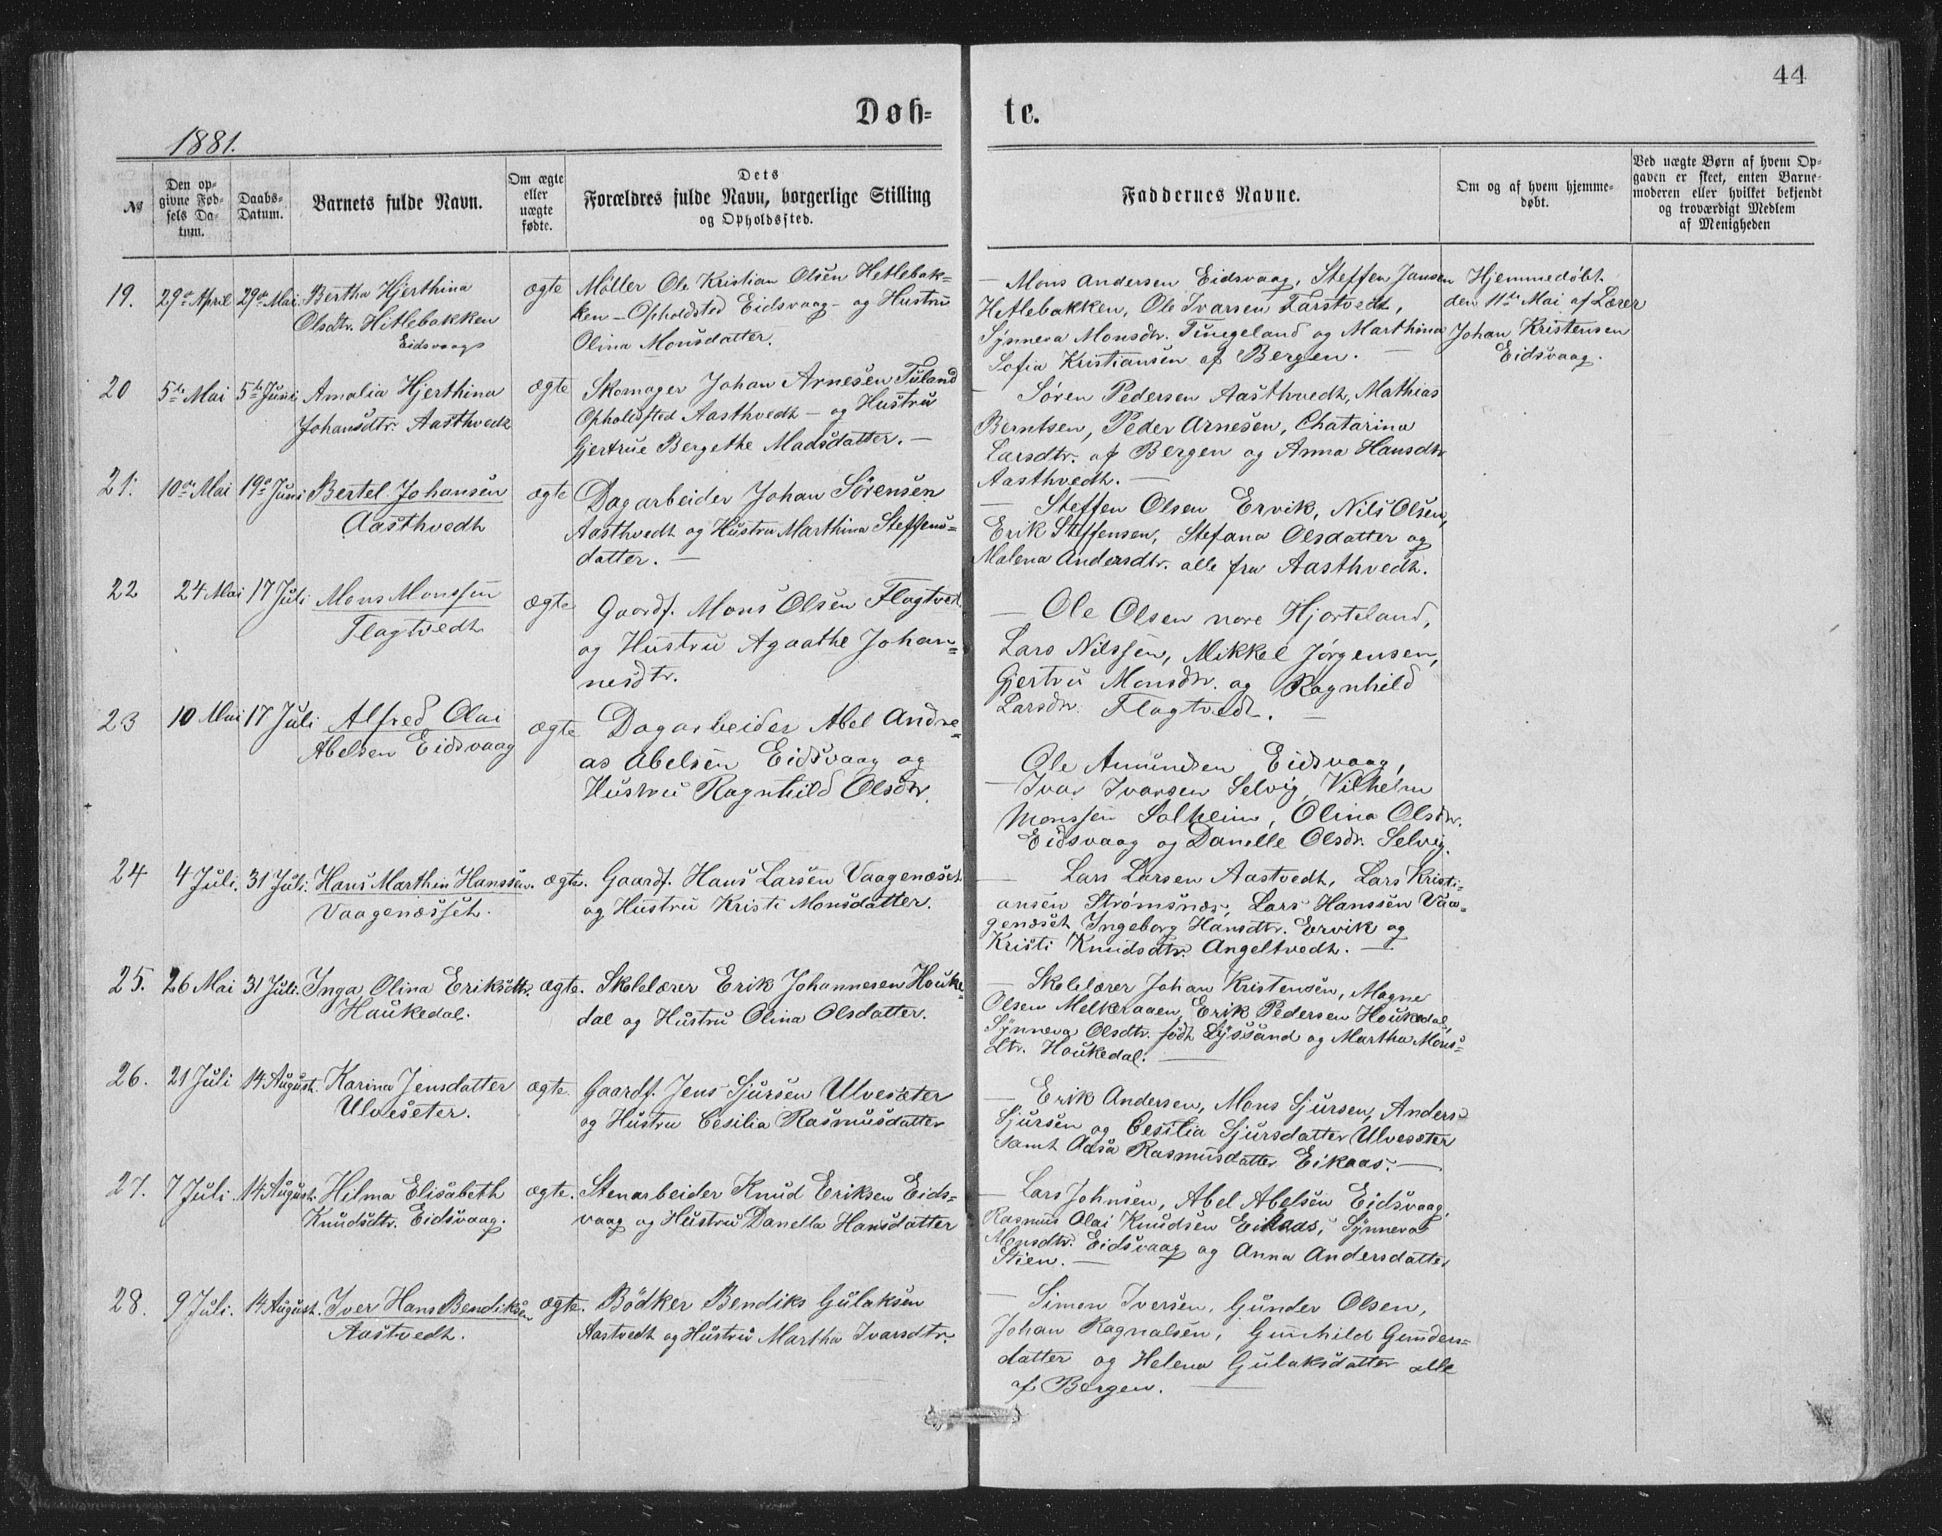 44
Døb=
te.
1881.
№
Den op-
givne Fød-
sels Da-
tum.
Daabs-
Datum.
Barnets fulde Navn.
Om ægte
eller
uægte
fødte.
Dets
Forældres fulde Navn, borgerlige Stilling
og Opholdssted.
Faddernes Navne.
Om og af hvem hjemme-
døbt.
Ved uægte Børn af hvem Op-
gaven er skeet, enten Barne-
moderen eller hvilket bekjendt
og troværdigt Medlem
af Menigheden
19.
29de April
29de Mai
Bertha Hjerthina
Olsdtr. Hetlebakken
Eidsvaag
ægte
Møller Ole Kristian Olsen Hetlebak-
ken - Opholdsted Eidsvaag - og Hustru
Olina Monsdatter.
— Mons Andersen Eidsvaag, Steffen Jansen
Hetlebakken, Ole Ivarsen Tarstvedt,
Synneva Monsdtr. Tingeland og Marthina
Sofia Kristiansen af Bergen. —
Hjemmedøbt
den 11te Mai af Lærer
Johan Kristensen
Eidsvaag.
20
5te Mai
5te Juni
Amalia Hjerthina
Johansdtr. Aasthvedt
ægte
Skomager Johan Arnesen Tuland
Opholdsted Aasthvedt - og Hustru
Gjertrue Bergethe Madsdatter. —
— Søren Pedersen Aasthvedt, Mathias
Berntsen, Peder Arnesen, Chatarina
Larsdtr. af Bergen og Anna Hansdtr
Aasthvedt. —
21.
10de Mai
19de Juni
Bertel Johansen
Aasthvedt
ægte
Dagarbeider Johan Sørensen
Aasthvedt og Hustru Marthina Steffens=
datter. —
— Steffen Olsen Ervik, Nils Olsen,
Erik Steffensen, Stefana Olsdatter og
Malena Andersdtr. alle fra Aasthvedt.
22
24 Mai
17 Juli
Mons Monssen
Flagtvedt
ægte
Gaardf. Mons Olsen Flagtvedt
og Hustru Agaathe Johan=
nesdtr.
— Ole Olsen nore Hjorteland,
Lars Nilssen, Mikkel Jørgensen,
Gjertru Monsdtr. og Ragnhild
Larsdtr. Flagtvedt. —
23
10 Mai
17 Juli
Alfred Olai
Abelsen Eidsvaag
ægte
Dagarbeider Abel Andre=
as Abelsen Eidsvaag og
Hustru Ragnhild Olsdtr.
Ole Amundsen Eidsvaag,
— Ivar Ivarsen Selvig, Vilhelm
Monssen Solheim, Olina Olsdtr.
Eidsvaag og Danelle Olsdr. Selvig.
24
4 Juli.
31 Juli.
Hans Marthin Hanssen.
Vaagenæsset.
ægte.
Gaardf. Hans Larsen Vaagenæset
og Hustru Kristi Monsdatter.
— Lars Larsen Aastvedt, Lars Kristi-
ansen Strømsnæs, Lars Hanssen Vaa=
genæset, Ingeborg Hansdtr. Ervik og
Kristi Knudsdtr. Angeltvedt. —
25.
26 Mai
31 Juli.
Inga Olina Eriksdtr.
Haukedal.
ægte.
Skolelærer Erik Johannesen Houke-
dal og Hustru Olina Olsdatter.
— Skolelærer Johan Kristensen, Magne
Olsen Melkeraaen, Erik Pedersen Houkedal,
Synneva Olsdtr. født Lyssand og Martha Mons=
dtr. Houkedal. —
26.
21 Juli
14 August.
Karina Jensdatter
Ulveseter.
ægte.
Gaardf. Jens Sjursen Ulvesæter
og Hustru Cesilia Rasmusdatter
— Erik Andersen, Mons Sjursen, Anders
Sjursen og Cesilia Sjursdatter Ulvesæter
samt Aasa Rasmusdatter Eikaas. —
27.
7 Juli
14 August.
Hilma Elisabeth
Knudsdtr. Eidsvaag.
ægte.
Stenarbeider Knud Eriksen Eids-
vaag og Hustru Danella Hansdatter
— Lars Johnsen, Abel Abelsen Eidsvaag,
Rasmus Olai Knudsen Eikaas, Synneva
Monsdtr. Eidsvaag og Anna Andersdatter
Stien. —
28.
9 Juli.
14 August.
Iver Hans Bendiksen
Aastvedt.
ægte.
Bödker Bendiks Gulaksen
Aastvedt og Hustru Martha Ivarsdtr.
— Simon Iversen, Gunder Olsen,
Johan Ragnalsen, Gunhild Gunders=
datter og Helena Gulaksdatter alle
af Bergen. —